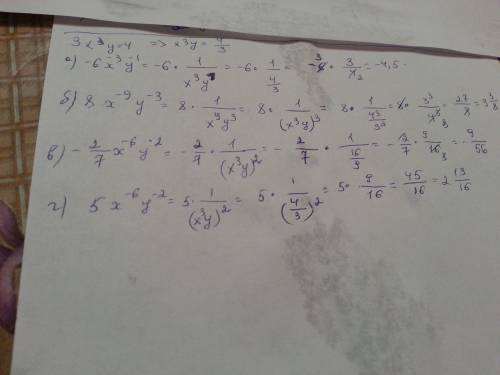 3x³y=4 => x³y = 4/3
а) -6x⁻³y⁻¹ = -6 · 1/(x³y) = -6 · 1/(4/3) = -6 · 3/4 = -4,5
б) 8x⁻⁹y⁻³ = 8 · 1/(x⁹y³) = 8 · 1/(x³y)³ = 8 · 1/(4³/3³) = 8 · 3³/4³ = 27/8 = 3 3/8
в) -2/7 x⁻⁶y⁻² = -2/7 · 1/(x³y)² = -2/7 · 1/(16/9) = -2/7 · 9/16 = -9/56
г) 5x⁻⁶y⁻² = 5 · 1/(x³y)² = 5 · 1/(4/3)² = 5 · 9/16 = 45/16 = 2 13/16